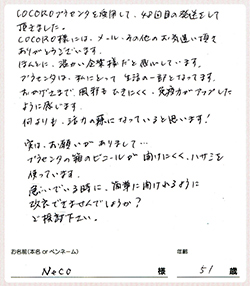 COCOROプラセンタを使用して、48回目の発送をして
頂きました。
COCORO様には、メール・その他のお気遣い頂き
ありがとうございます。
ほんとに、温かい企業様だと思いしています。
プラセンタは、私にとって生活の一部となってます。
おかげさまで、風邪もひきにくく、免疫力がアップした
ように感じます。
何よりも、活力の源になっていると思います!
実は、お願いがありまして…
プラセンタの箱のビニールが開けにくく、ハサミを
使っています。
急いでいる時に、簡単に開けれるように
改良できませんでしょうか?
ご検討下さい。
お名前(本名 or ペンネーム)
年齢
NeCO 様 51 歳